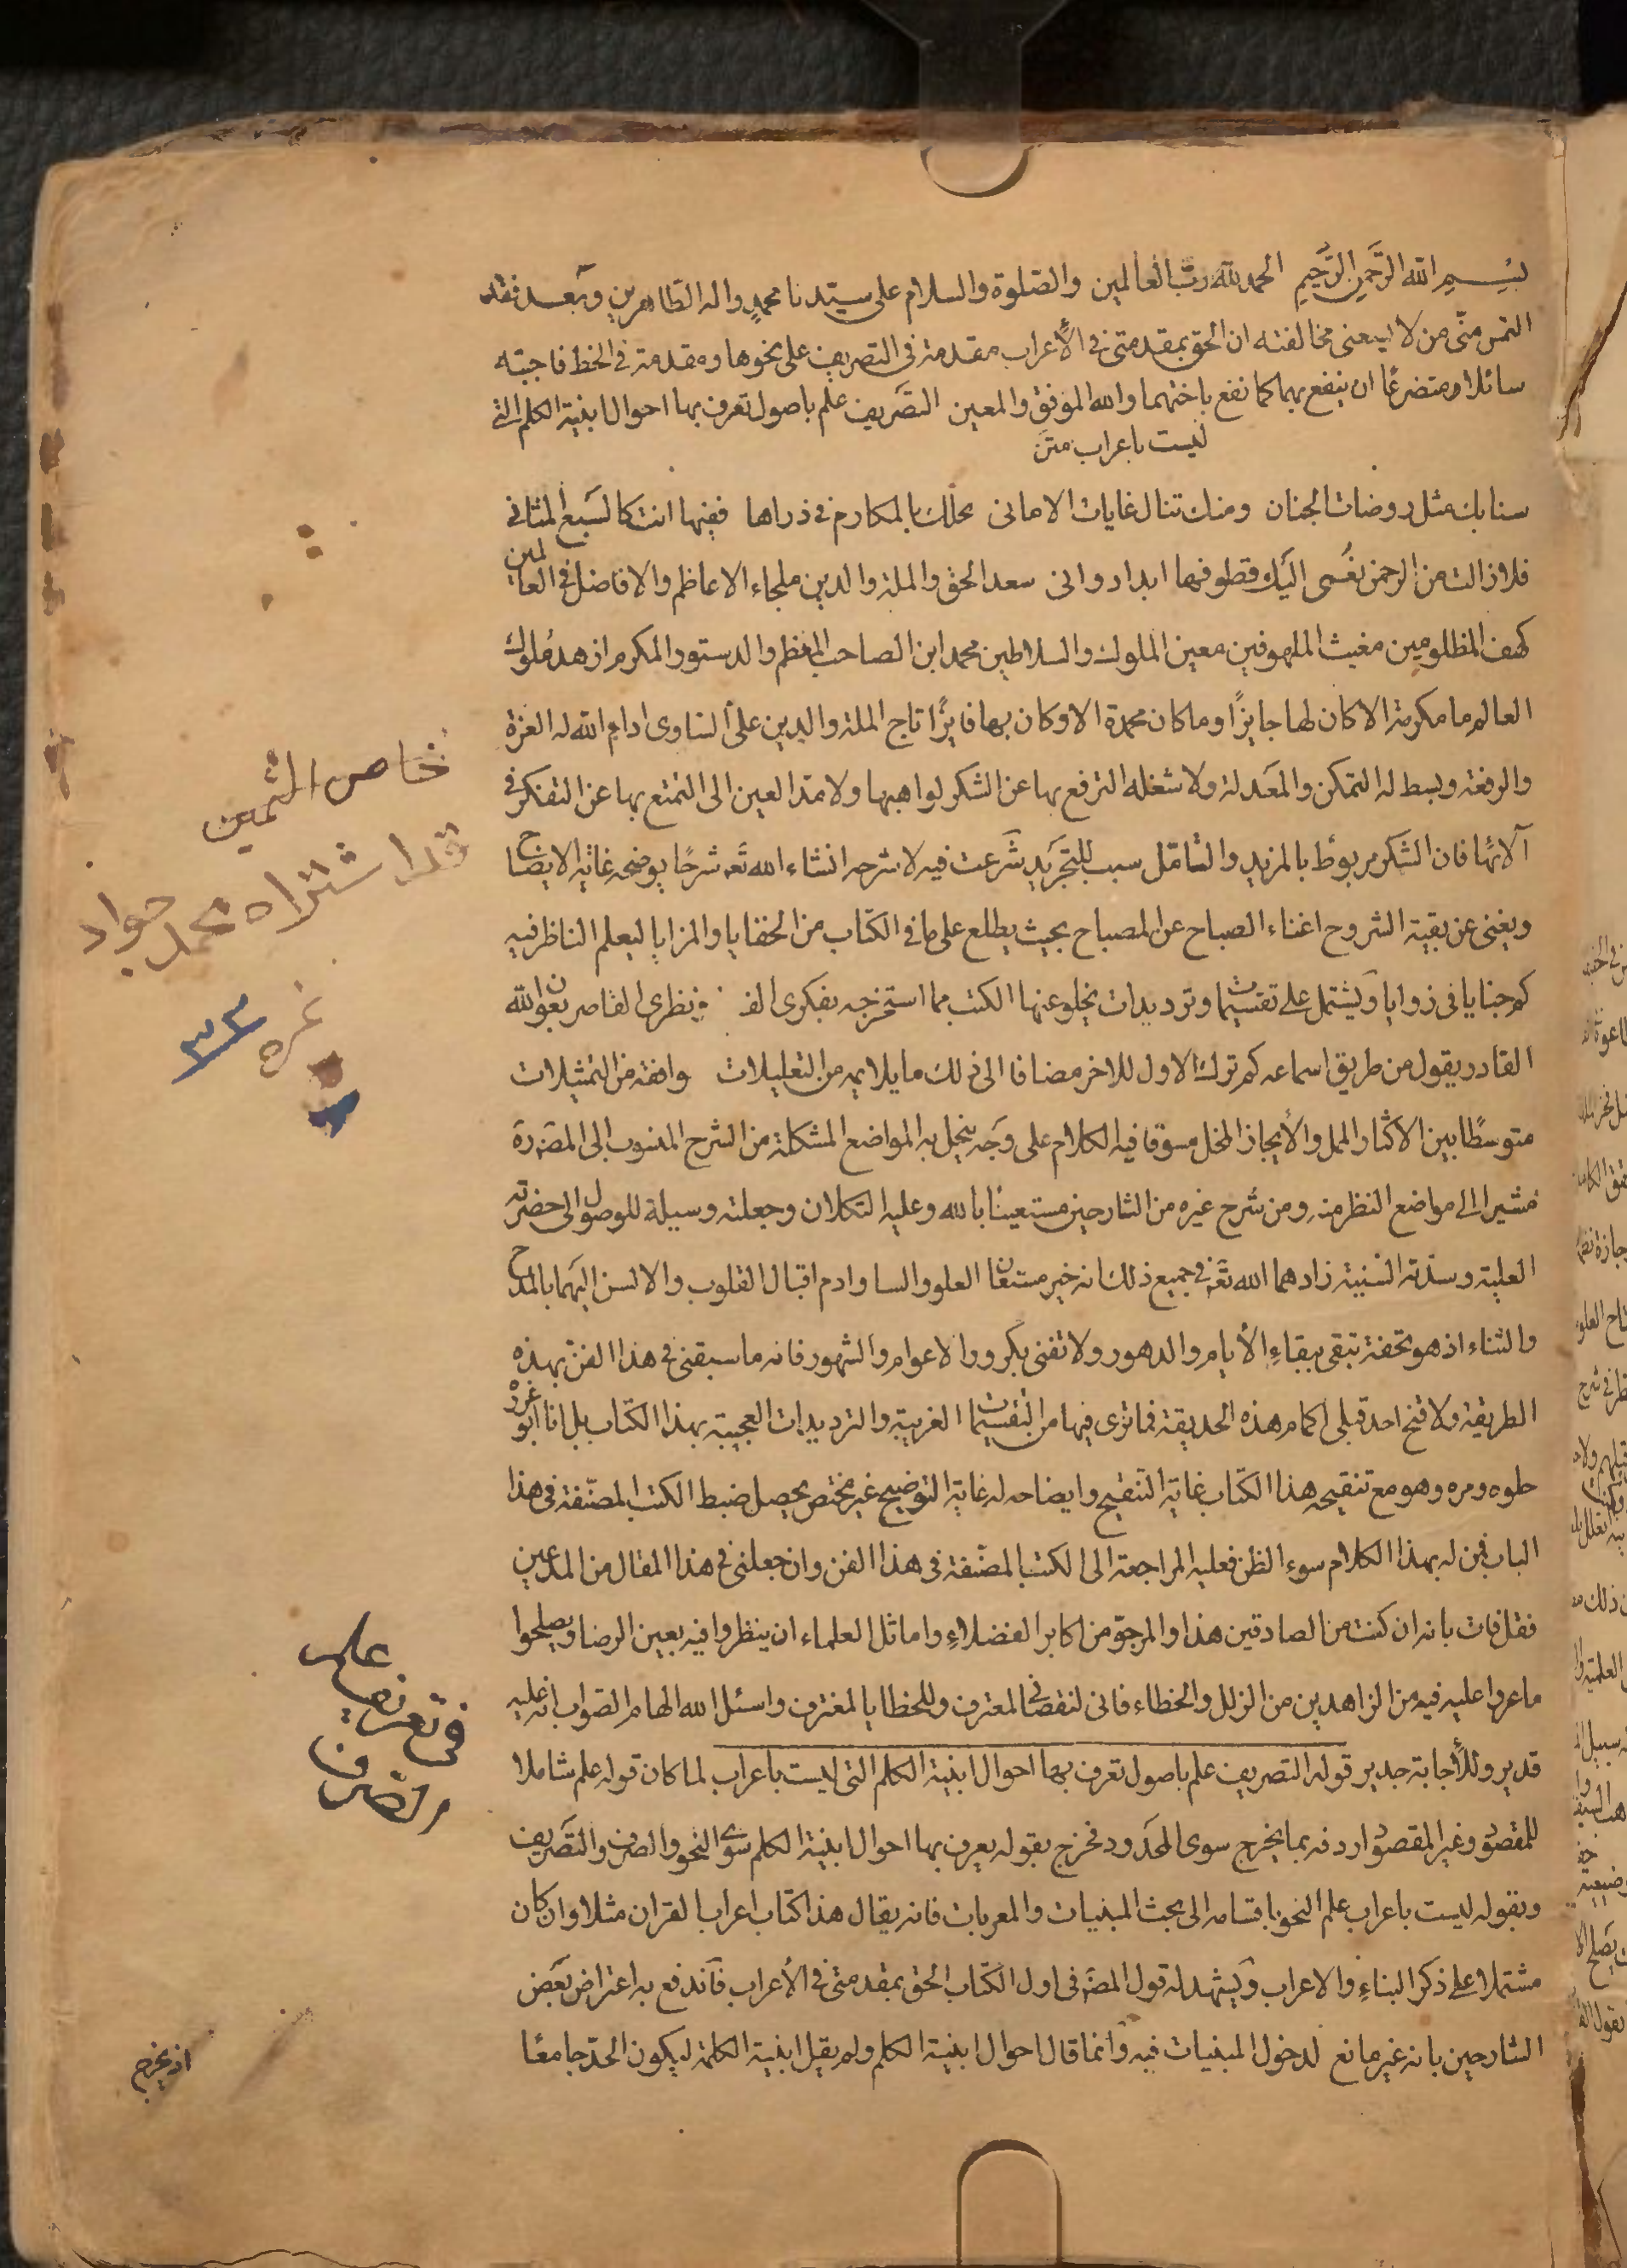 بسم الله الرحمن الرحيم الحمد لله رب العالمين والصلوة والسلام على سيدنا محمد واله الطاهرين وبعد فقد
التمس منى من لا يسعنى مخالفته ان الحق بمقدمتى فى الأعراب مقدمة فى التصريف على نحوها ومقدمة فى الخط فاجبته
سائلا ومتضرعا ان ينفع بهما كما نفع باختهما والله الموفق والمعين التصريف علم باصول تعرف بها احوال ابنية الكلم التى
ليست باعراب متن
سنا بك مثل روضات الجنان ومنك تنال غايات الامانى محلك بالمكارم فى ذراها ففيها انت كالسبع المثانى
فلا زالت من الرحمن نعمى اليك قطوفها ابدا دوانى سعد الحق والملة والدين ملجاء الاعاظم والافاضل فى العالمين
كهف المظلومين مغيث الملهوفين معين الملوك والسلاطين محمد ابن الصاحب المعظم والدستور المكرم ازهد ملوك
العالم ما مكرمة الا كان لها جايزًا وما كان محمدة الا وكان بها فايزًا تاج الملة والدين على الساوى ادام الله له العزة
والرفعة وبسط له التمكن والمعدلة ولا شغله الترفع بها عن الشكر لواهبها ولا مد العين الى التمتع بها عن التفكر فى
آلائها فان الشكر مربوط بالمزيد والتامل سبب للتجريد شرعت فيه لاشرحه انشاء الله تع شرحًا يوضحه غاية الايضاح
ويغنى عن بقية الشروح اغناء الصباح عن المصباح بحيث يطلع على ما فى الكتاب من الخفايا والمزايا ليعلم الناظر فيه
كم خبايا فى زوايا ويشتمل على تقسيمات وترديدات يخلو عنها الكتب مما استخرجه بفكرى الفا ونظرى القاصر بعون الله
القادر ويقول من طريق اسماعه كم ترك الاول للاخر مضافا الى ذلك ما يلايمه من التعليلات وافقه من التمثيلات
متوسطًا بين الاكثار الممل والأيجاز المخل مسوقا فيه الكلام على وجه ينحل به المواضع المشكلة من الشرح المنسوب الى المصنف رة
مشيرا الى مواضع النظر منه ومن شرح غيره من الشارحين مستعينًا بالله وعليه التكلان وجعلته وسيلة للوصول الى حضرته
العلية وسدته السنية زادهما الله تع فى جميع ذلك انه خير مستعان العلو والسنا وادم اقبال القلوب والالسن اليهما بالمدح
والثناء اذ هو تحفة تبقى ببقاء الأيام والدهور ولا تفنى بكرور الاعوام والشهور فانه ما سبقنى فى هذا الفن بهذه
الطريقة ولا فتح احد قبلى اكمام هذه الحديقة فما ترى فيها من التقسيمات الغريبة والترديدات العجيبة بهذا الكتاب بل انا ابو عذره
حلوه ومره وهو مع تنقيحه هذا الكتاب غاية التنقيح وايضاحه له غاية التوضيح غير مختص بحصيل ضبط الكتب المصنفة فى هذا
الباب فمن له بهذا الكلام سوء الظن فعليه المراجعة الى الكتب المصنفة فى هذا الفن وان جعلنى فى هذا المقال من المدعين
فقل فات بانه ان كنت من الصادقين هذا والمرجو من اكابر الفضلاء واماثل العلماء ان ينظروا فيه بعين الرضا ويصلحوا
ما عروا عليه فيه من الزاهدين من الزلل والخطاء فانى لنقصانى لمعترف وللخطايا لمغترف واسئل الله الهام الصواب انه عليه
قدير وللأجابة جدير قوله التصريف علم باصول تعرف بها احوال ابنية الكلم التى ليست باعراب لما كان قوله علم شاملا
للمقصود وغير المقصود اردفه بما يخرج سوى المحدود فخرج بقوله يعرف بها احوال ابنية الكلم سوى النحو والصرف والتصريف
وبقوله ليست باعراب علم النحو باقسامه الى بحث المبنيات والمعربات فانه يقال هذا كتاب اعراب القران مثلا وان كان
مشتملا على ذكر البناء والاعراب ويشهد له قول المص فى اول الكتاب الحق بمقدمتى فى الأعراب فاندفع به اعتراض بعض
الشارحين بانه غير مانع لدخول المبنيات فيه وانما قال احوال ابنية الكلم ولم يقل ابنية الكلمة ليكون الحد جامعًا
اذ يخرج
محمد جواد
غره
٣٣
على
فى تعريف
الصرف